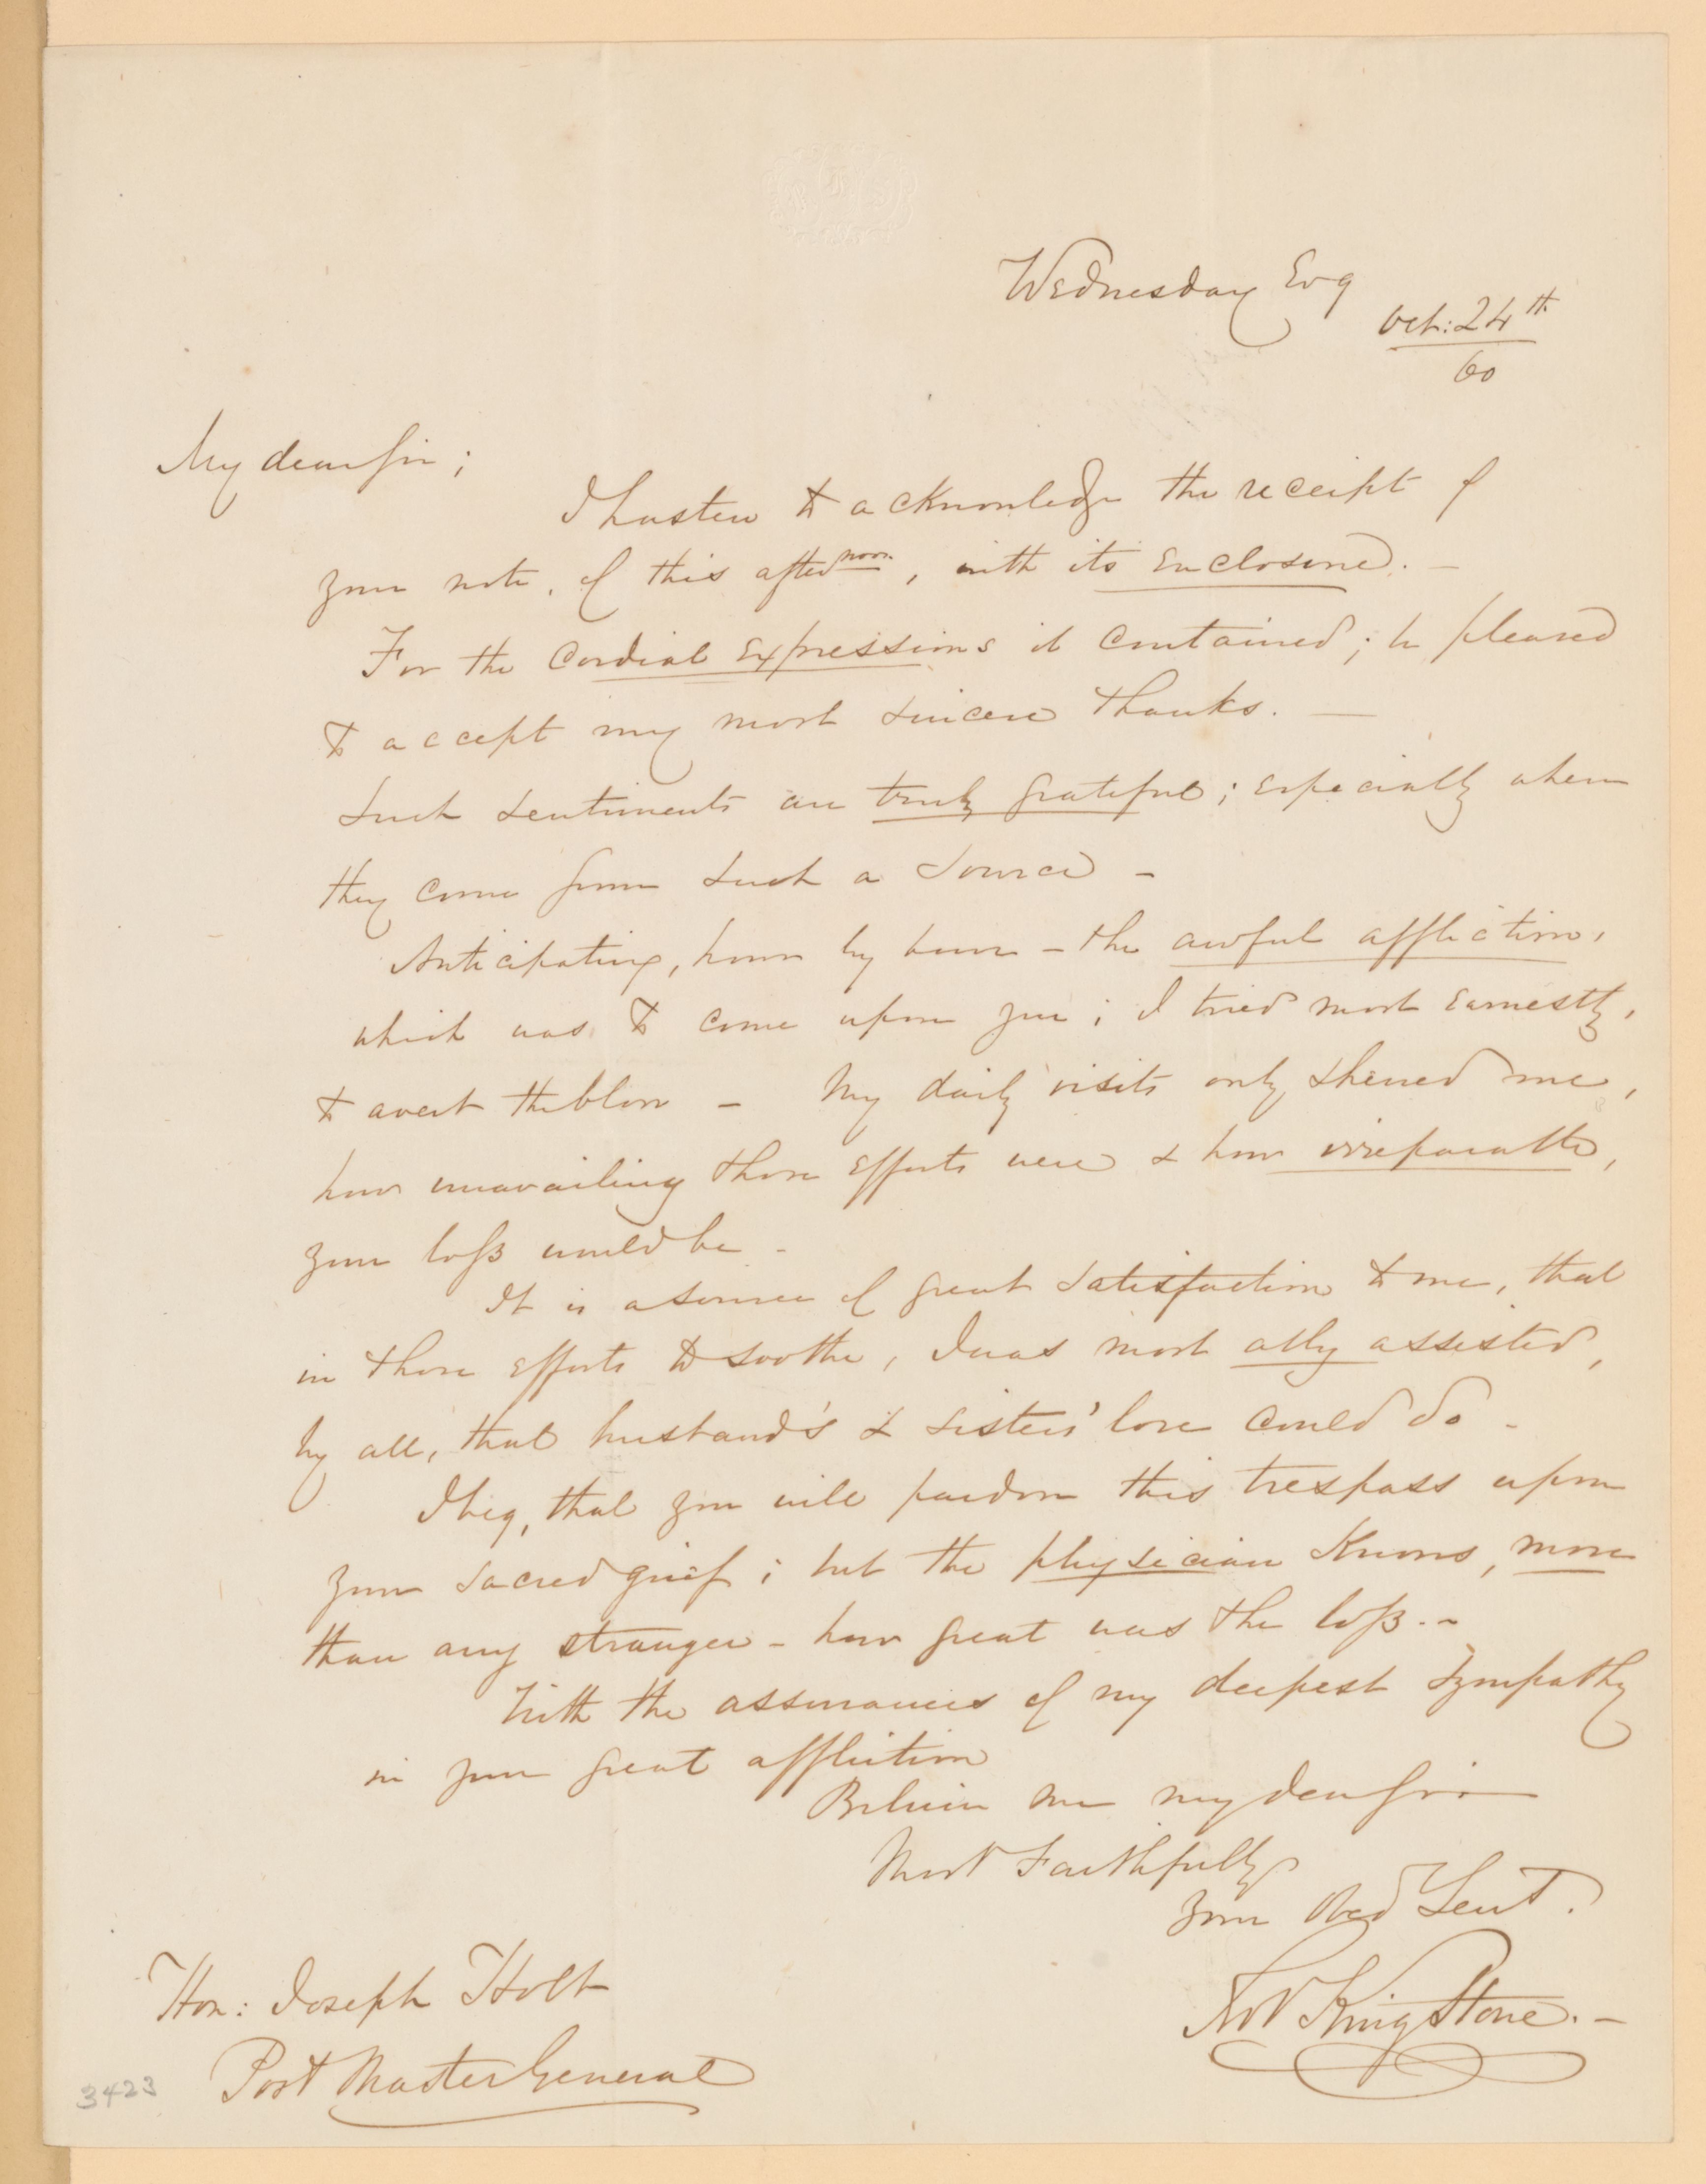 Wednesday Evg
Oct: 24th
60
My dear Sir;
I hasten to acknowledge the receipt of
your note, of this afternoon, with its Enclosure. —
For the Cordial Expressions it contained; be pleased
to accept my most sincere thanks. —
Such sentiments are truly grateful; especially when
they come from such a source –
Anticipating, hour by hour – the awful affliction,
which was to come upon you; I tried most earnestly,
to avert the blow – My daily visits only shewed me,
how unavailing those efforts were & how irreparable,
your loss would be –
It is a source of great satisfaction to me, that
in those efforts to soothe, I was most ably assisted,
by all, that husband's & sisters' love could do –
I beg, that you will pardon this trespass upon
your sacred grief; but the physician knows, more
than any stranger – how great was the loss. –
With the assurances of my deepest sympathy
in your great affliction
Believe me my dear Sir
Most Faithfully
Your Obed Servt.
Robt King Stone. –
Hon: Joseph Holt
Post Master General
3423